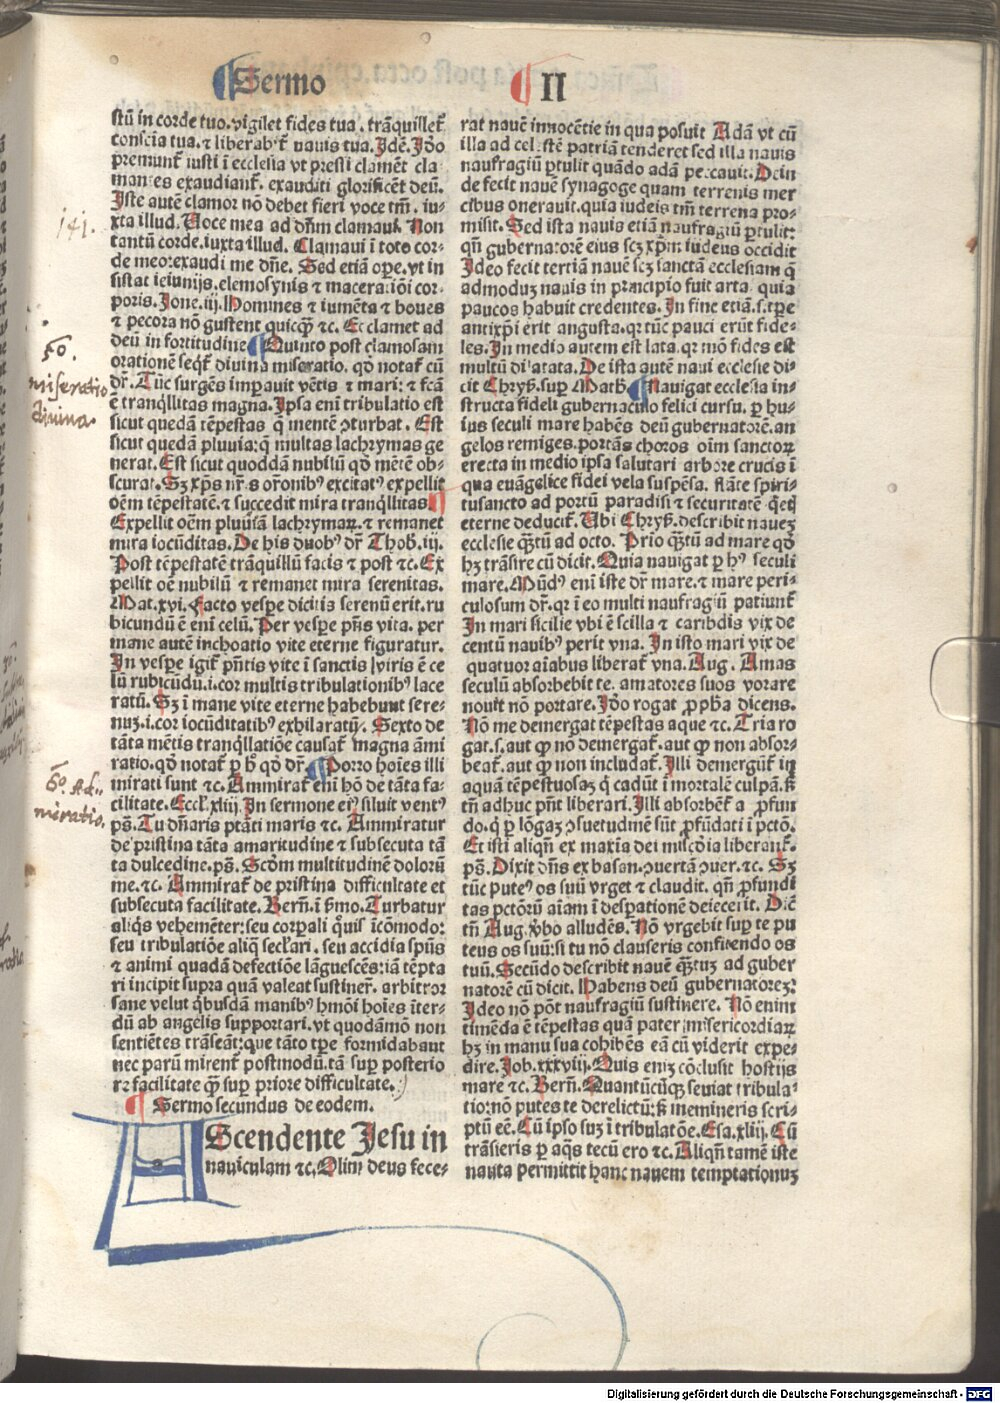 Sermo
II
stū in corde tuo. vigilet fides tua. trāquillet᷑
conscia tua. ⁊ liberab᷑t᷑ nauis tua. Idē. Ido
premunt᷑ iusti ī ecclesia vt pressi clamēt cla
mantes exaudiant᷑. exauditi glorificēt deū.
Iste autē clamor nō debet fieri voce tm̄. iu-
xta illud. Uoce mea ad dn̄m clamaui. Non
tantū corde. iuxta illud. Clamaui ī toto cor-
de meo: exaudi me dn̄e. Sed etiā ope. vt in
sistat ieiunijs. elemosynis ⁊ maceratiōi cor-
poris. Jone. iij. Homines ⁊ iumēta ⁊ boues
⁊ pecora nō gustent quicq̄ ⁊c. Et clamet ad
deū in fortitudine Quinto post clamosam
orationē seqt᷑ diuina miseratio. qd̄ notat᷑ cū
dr̄. Tūc surgēs impauit vētis ⁊ mari: ⁊ fcā
ē tranq̄llitas magna. Ipsa enī tribulatio est
sicut quedā tēpestas q̄ mentē ꝯturbat. Est
sicut quedā pluuia: q̄ multas lachrymas ge
nerat. Est sicut quoddā nubilū qd̄ mētē ob-
scurat. Sꝫ xp̄s nr̄is or̄onibꝰ excitatꝰ expellit
oēm tēpestatē. ⁊ succedit mira tranq̄llitas
Expellit oēm pluuiā lachrymaꝝ. ⁊ remanet
mira iocūditas. De his duobꝰ dr̄ Thob. iij.
Post tēpestatē trāquillū facis ⁊ post ⁊c. Ex
pellit oē nubilū ⁊ remanet mira serenitas.
Mat. xvi. Facto vespe dicitis serenū erit. ru
bicundū ē enī celū. Per vespe pn̄s vita. per
mane autē inchoatio vite eterne figuratur.
In vespe igit᷑ pn̄tis vite ī sanctis viris ē ce
lū rubicūdū. i. cor multis tribulationibꝰ lace
ratū. Sꝫ ī mane vite eterne habebunt sere-
nuꝫ. i. cor iocūditatibꝰ exhilaratū. Sexto de
tāta mētis tranq̄llatiōe causat᷑ magna āmi
ratio. qd̄ notat᷑ p h̄ qd̄ dr̄. Porro hoīes illi
mirati sunt ⁊c. Ammirat᷑ enī hō de tāta fa-
cilitate. Eccl. xliij. In sermone eiꝰ siluit ventꝰ
ps̄. Tu dn̄aris ptāti maris ⁊c. Ammiratur
de pristina tāta amaritudine ⁊ subsecuta tā
ta dulcedine. ps̄. Scd̄m multitudinē dolorū
me. ⁊c. Ammirat᷑ de pristina difficultate et
subsecuta facilitate. Bern̄. ī s̄mo. Turbatur
aliq̄s vehemēter: seu corpali q̄uis īcōmodo:
seu tribulatiōe aliq̄ sec̄lari. seu accidia spūs
⁊ animi quadā defectiōe lāguescēs: iā tēpta
ri incipit supra quā valeat sustiner᷑. arbitror
sane velut q̄busdam manibꝰ hmōi hoīes īter-
dū ab angelis supportari. vt quodāmō non
sentiētes trāseāt: que tāto tpe formidabant
nec parū mirent᷑ postmodū. tā sup posterio
re facilitate q̄ sup priore difficultate.
Sermo secundus de eodem.
AScendente Jesu in
nauiculam ⁊c. Olim deus fece-
rat nauē innocētie in qua posuit Adā vt cū
illa ad celestē patriā tenderet sed illa nauis
naufragiū ꝑtulit quādo adā peccauit. Dein
de fecit nauē synagoge quam terrenis mer
cibus onerauit. quia iudeis tm̄ terrena pro-
misit. Sed ista nauis etiā naufragiū ꝑtulit:
qn̄ gubernatorē eius scꝫ xp̄m iudeus occidit
Ideo fecit tertiā nauē scꝫ sanctā ecclesiam q̄
admoduꝫ nauis in principio fuit arta. quia
paucos habuit credentes. In fine etiā. s. tpe
antixp̄i erit angusta. qꝛ tūc pauci erūt fide-
les. In medio autem est lata. qꝛ mō fides est
multū dilatata. De ista autē naui ecclesie di-
cit Chrys̄. sup Math. Nauigat ecclesia in-
structa fideli gubernaculo felici cursu. p hu-
ius seculi mare habēs deū gubernatorē. an
gelos remiges. portās choros oīm sanctoꝝ
erecta in medio ipsa salutari arbore crucis ī
qua euāgelice fidei vela suspēsa. flāte spiri-
tusancto ad portū paradisi ⁊ securitatē q̄eti
eterne deducit᷑. Ubi Chrys̄. describit naueꝫ
ecclesie q̄ꝫtū ad octo. Prīo q̄ꝫtū ad mare qd̄
hꝫ trāsire cū dicit. Quia nauigat p hꝰ seculi
mare. Mūdꝰ enī iste dr̄ mare. ⁊ mare peri-
culosum dr̄. qꝛ ī eo multi naufragiū patiunt᷑
In mari sicilie vbi ē scilla ⁊ caribdis vix de
centū nauibꝰ perit vna. In isto mari vix de
quatuor aīabus liberat᷑ vna. Aug. Amas
seculū absorbebit te. amatores suos vorare
nouit nō portare. Ido rogat ꝓpha dicens.
Nō me demergat tēpestas aque ⁊c. Tria ro
gat. s. aut ꝙ nō demergat᷑. aut ꝙ non absor-
beat᷑. aut ꝙ non includat᷑. Illi demergūt᷑ in
aquā tēpestuosaꝫ q̄ cadūt ī mortalē culpā. sꝫ
tn̄ adhuc pn̄t liberari. Illi absorbēt᷑ a ꝓfun
do. q̄ p lōgaꝫ ꝯsuetudinē sūt ꝓfūdati ī pctō.
Et isti aliqn̄ ex maxīa dei mīscd̄ia liberant᷑.
ps̄. Dixit dn̄s ex basan. ꝯuertā ꝯuer. ⁊c. Sꝫ
tūc puteꝰ os suū vrget ⁊ claudit. qn̄ ꝓfundi
tas pctōrū aīam ī despationē deiecerit. Dic̄
tn̄ Aug. v̄bo alludēs. Nō vrgebit sup te pu
teus os suū: si tu nō clauseris confitendo os
tuū. Secūdo describit nauē q̄ꝫtuꝫ ad guber
natorē cū dicit. Habens deū gubernatoreꝫ:
Ideo nō pōt naufragiū sustinere. Nō enim
timēda ē tēpestas quā pater misericordiaꝝ
hꝫ in manu sua cohibēs eā cū viderit expe-
dire. Job. xxxviij. Quis enīꝫ cōclusit hostijs
mare ⁊c. Bern̄. Quantūcūqꝫ seuiat tribula-
tio: nō putes te derelictū: sꝫ memineris scri-
ptū eē. Cū ipso suꝫ ī tribulatōe. Esa. xliij. Cū
trāsieris p aq̄s tecū ero ⁊c. Aliqn̄ tamē iste
nauta permittit hanc nauem temptationuꝫ
141.
5o.
miseratio
diuina.
6o. Ad-
miratio.
Digitalisierung gefördert durch die Deutsche Forschungsgemeinschaft - DFG